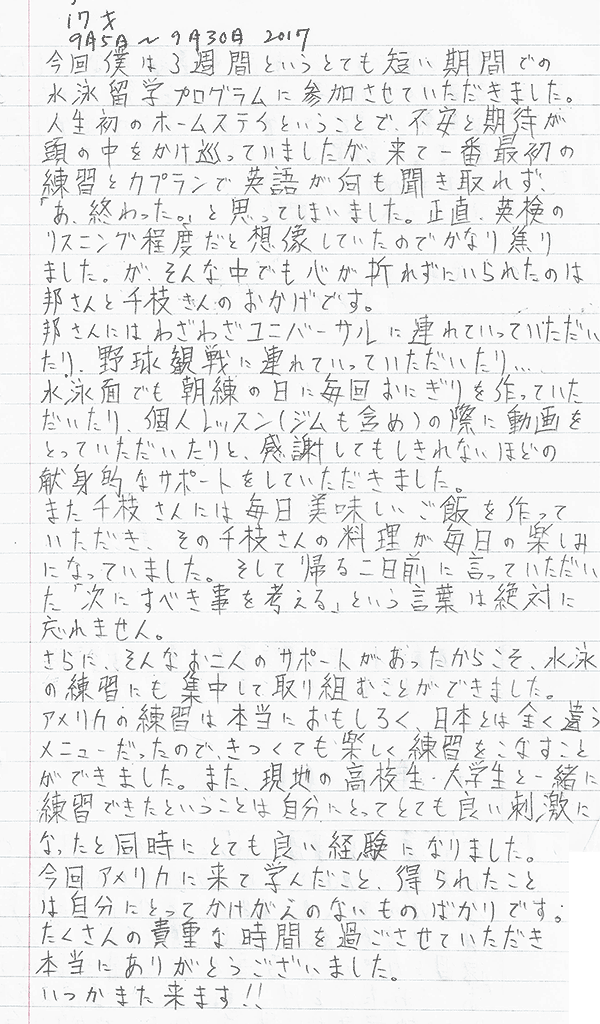 17才
9月5日～9月30日 2017
今回僕は3週間というとても短い期間での
水泳留学プログラムに参加させていただきました。
人生初のホームステイということで、不安と期待が
頭の中をかけ巡っていましたが、来て一番最初の
練習とカプランで英語が何も聞き取れず、
「あ、終わった。」と思ってしまいました。正直、英検の
リスニング程度だと想像していたのでかなり焦り
ました。が、そんな中でも心が折れずにいられたのは
邦さんと千枝さんのおかげです。
邦さんにはわざわざユニバーサルに連れていっていただい
たり、野球観戦に連れていっていただいたり…
水泳面でも朝練の日に毎回おにぎりを作っていた
だいたり、個人レッスン(ジムも含め)の際に動画を
とっていただいたりと、感謝してもしきれないほどの
献身的なサポートをしていただきました。
また千枝さんには毎日美味しいご飯を作って
いただき、その千枝さんの料理が毎日の楽しみ
になっていました。そして帰る二日前に言っていただい
た「次にすべき事を考える」という言葉は絶対に
忘れません。
さらに、そんなお二人のサポートがあったからこそ、水泳
の練習にも集中して取り組むことができました。
アメリカの練習は本当におもしろく、日本とは全く違う
メニューだったので、きつくても楽しく練習をこなすこと
ができました。また、現地の高校生・大学生と一緒に
練習できたということは自分にとってとても良い刺激に
なったと同時にとても良い経験になりました。
今回アメリカに来て学んだこと、得られたこと
は自分にとってかけがえのないものばかりです。
たくさんの貴重な時間を過ごさせていただき
本当にありがとうございました。
いつかまた来ます!!